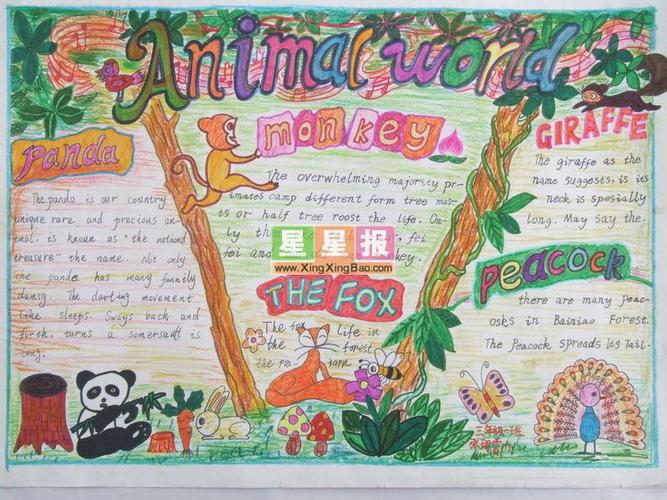 Animal world
Panda
The panda is our country
unique rare and precious an-
imal, is known as "the national
treasure" the name. Not only
the panda has many funnily
clumsy. The darting movement
like sleeps. Sways back and
forth, turns a somersault is
long.
monkey
The overwhelming majority pr-
imates camp different form tree mos-
ts or half tree roost the life. On-
ly th
fei
fei and key.
星星报
www.XingXingBao.com
THE FOX
The fox life in
the forest
the
GIRAFFE
The giraffe as the
name suggests, is its
neck is spesially
long. May say the.
Peacock
there are many Peac-
osks in Bainiao Forest.
The Peacock spreads its Tail-
三年级一班